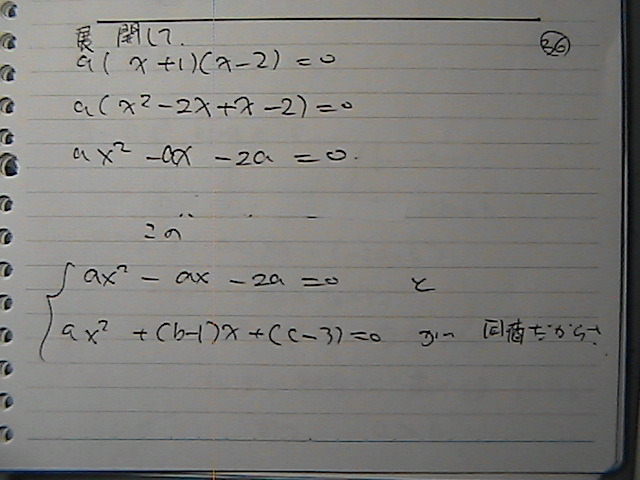 展開して. ㊱
a(x+1)(x-2)=0
a(x²-2x+x-2)=0
ax²-ax-2a=0.
この
ax²-ax-2a=0 と
ax²+(b-1)x+(c-3)=0 が 同値だから